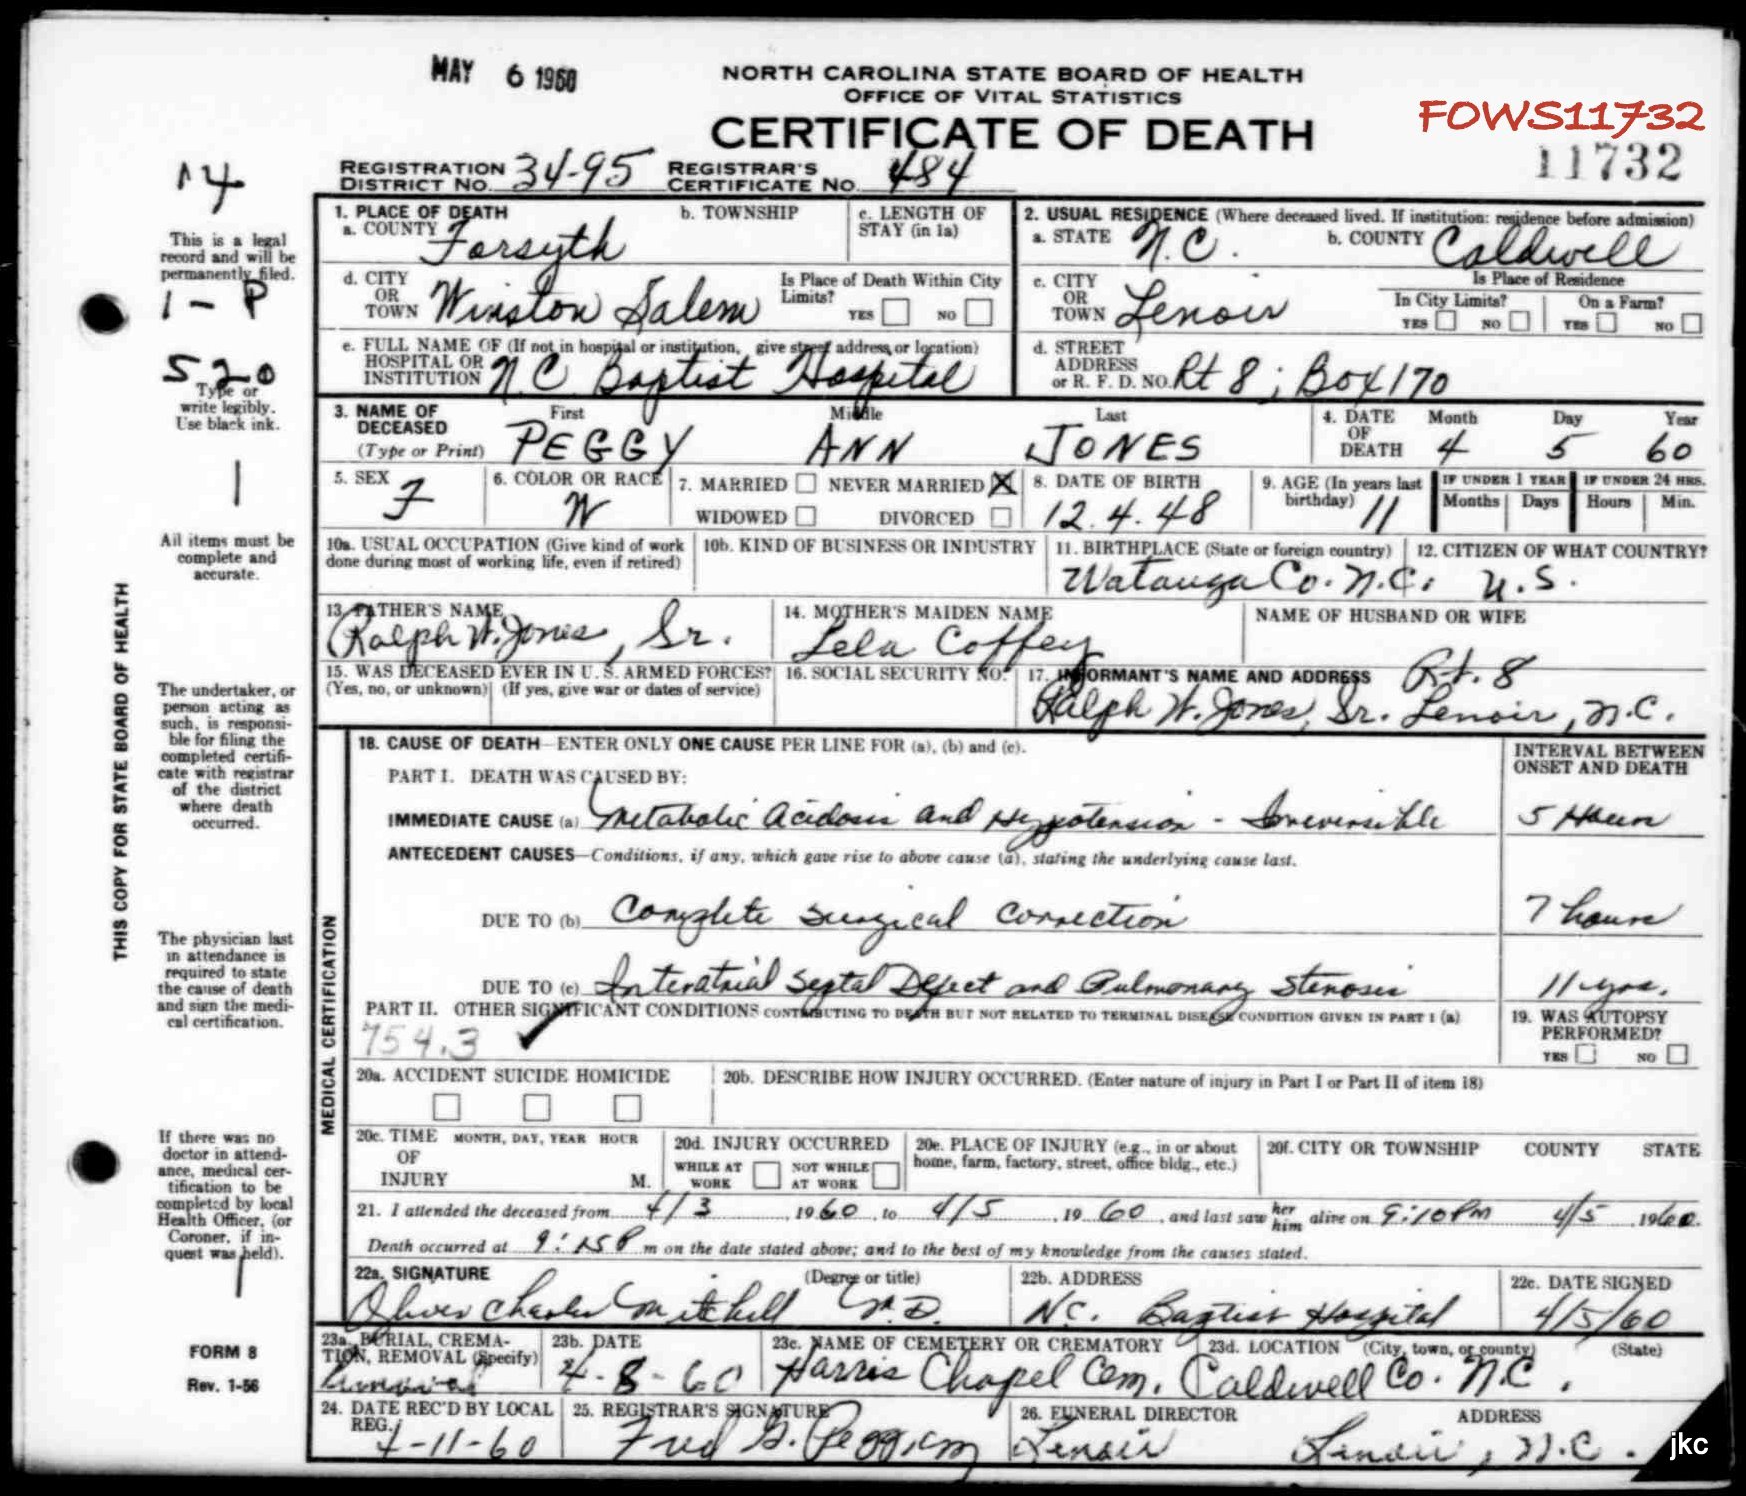 MAY 6 1960
NORTH CAROLINA STATE BOARD OF HEALTH
OFFICE OF VITAL STATISTICS
CERTIFICATE OF DEATH
FOWS11732
11732
REGISTRATION DISTRICT NO. 34-95 REGISTRAR'S CERTIFICATE NO. 484
14
This is a legal
record and will be
permanently filed.
1 - P
520
Type or
write legibly.
Use black ink.
1
All items must be
complete and
accurate.
THIS COPY FOR STATE BOARD OF HEALTH
The undertaker, or
person acting as
such, is responsi-
ble for filing the
completed certifi-
cate with registrar
of the district
where death
occurred.
The physician last
in attendance is
required to state
the cause of death
and sign the medi-
cal certification.
If there was no
doctor in attend-
ance, medical cer-
tification to be
completed by local
Health Officer, (or
Coroner, if in-
quest was held).
1
FORM 8
Rev. 1-56
1. PLACE OF DEATH
a. COUNTY Forsyth
b. TOWNSHIP
c. LENGTH OF STAY (in 1a)
2. USUAL RESIDENCE (Where deceased lived. If institution: residence before admission)
a. STATE N.C. b. COUNTY Caldwell
d. CITY OR TOWN Winston Salem
Is Place of Death Within City Limits? YES NO
c. CITY OR TOWN Lenoir
Is Place of Residence
In City Limits? YES NO On a Farm? YES NO
e. FULL NAME OF (If not in hospital or institution, give street address or location)
HOSPITAL OR INSTITUTION N C Baptist Hospital
d. STREET ADDRESS or R. F. D. NO. Rt 8; Box 170
3. NAME OF DECEASED (Type or Print) First PEGGY Middle ANN Last JONES
4. DATE OF DEATH Month 4 Day 5 Year 60
5. SEX F
6. COLOR OR RACE W
7. MARRIED NEVER MARRIED X
WIDOWED DIVORCED
8. DATE OF BIRTH 12.4.48
9. AGE (In years last birthday) 11
IF UNDER 1 YEAR Months Days
IF UNDER 24 HRS. Hours Min.
10a. USUAL OCCUPATION (Give kind of work done during most of working life, even if retired)
10b. KIND OF BUSINESS OR INDUSTRY
11. BIRTHPLACE (State or foreign country) Watauga Co. N.C.
12. CITIZEN OF WHAT COUNTRY? U.S.
13. FATHER'S NAME Ralph W. Jones, Sr.
14. MOTHER'S MAIDEN NAME Lela Coffey
NAME OF HUSBAND OR WIFE
15. WAS DECEASED EVER IN U. S. ARMED FORCES?
(Yes, no, or unknown) (If yes, give war or dates of service)
16. SOCIAL SECURITY NO.
17. INFORMANT'S NAME AND ADDRESS Rt. 8
Ralph W. Jones, Sr. Lenoir, N.C.
MEDICAL CERTIFICATION
18. CAUSE OF DEATH—ENTER ONLY ONE CAUSE PER LINE FOR (a), (b) and (c).
INTERVAL BETWEEN ONSET AND DEATH
PART I. DEATH WAS CAUSED BY:
IMMEDIATE CAUSE (a) Metabolic Acidosis and Hypotension - Irreversible 5 Hours
ANTECEDENT CAUSES—Conditions, if any, which gave rise to above cause (a), stating the underlying cause last.
DUE TO (b) Complete Surgical Correction 7 hours
DUE TO (c) Interatrial Septal Defect and Pulmonary Stenosis 11 yrs.
PART II. OTHER SIGNIFICANT CONDITIONS CONTRIBUTING TO DEATH BUT NOT RELATED TO TERMINAL DISEASE CONDITION GIVEN IN PART I (a)
754.3
19. WAS AUTOPSY PERFORMED? YES NO
20a. ACCIDENT SUICIDE HOMICIDE
20b. DESCRIBE HOW INJURY OCCURRED. (Enter nature of injury in Part I or Part II of item 18)
20c. TIME OF INJURY MONTH, DAY, YEAR HOUR M.
20d. INJURY OCCURRED
WHILE AT WORK NOT WHILE AT WORK
20e. PLACE OF INJURY (e.g., in or about home, farm, factory, street, office bldg., etc.)
20f. CITY OR TOWNSHIP COUNTY STATE
21. I attended the deceased from 4/3, 1960, to 4/5, 1960, and last saw her him alive on 9:10 PM 4/5 1960.
Death occurred at 9:15 P m on the date stated above; and to the best of my knowledge from the causes stated.
22a. SIGNATURE (Degree or title) Oliver Charles Mitchell M.D.
22b. ADDRESS N.C. Baptist Hospital
22c. DATE SIGNED 4/5/60
23a. BURIAL, CREMATION, REMOVAL (Specify) Removal
23b. DATE 4-8-60
23c. NAME OF CEMETERY OR CREMATORY Harris Chapel Cem.
23d. LOCATION (City, town, or county) (State) Caldwell Co. N.C.
24. DATE REC'D BY LOCAL REG. 4-11-60
25. REGISTRAR'S SIGNATURE Fred G. Pegg
26. FUNERAL DIRECTOR ADDRESS
Lenoir Lenoir, N.C.
jkc